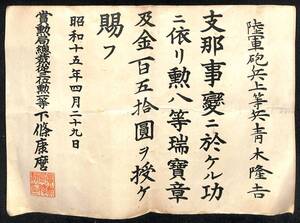 陸軍砲兵上等兵青木隆吉
支那事變ニ於ケル功
ニ依リ勲八等瑞寶章
及金百五拾圓ヲ授ケ
賜フ
昭和十五年四月二十九日
賞勲局總裁從三位勲一等下條康麿